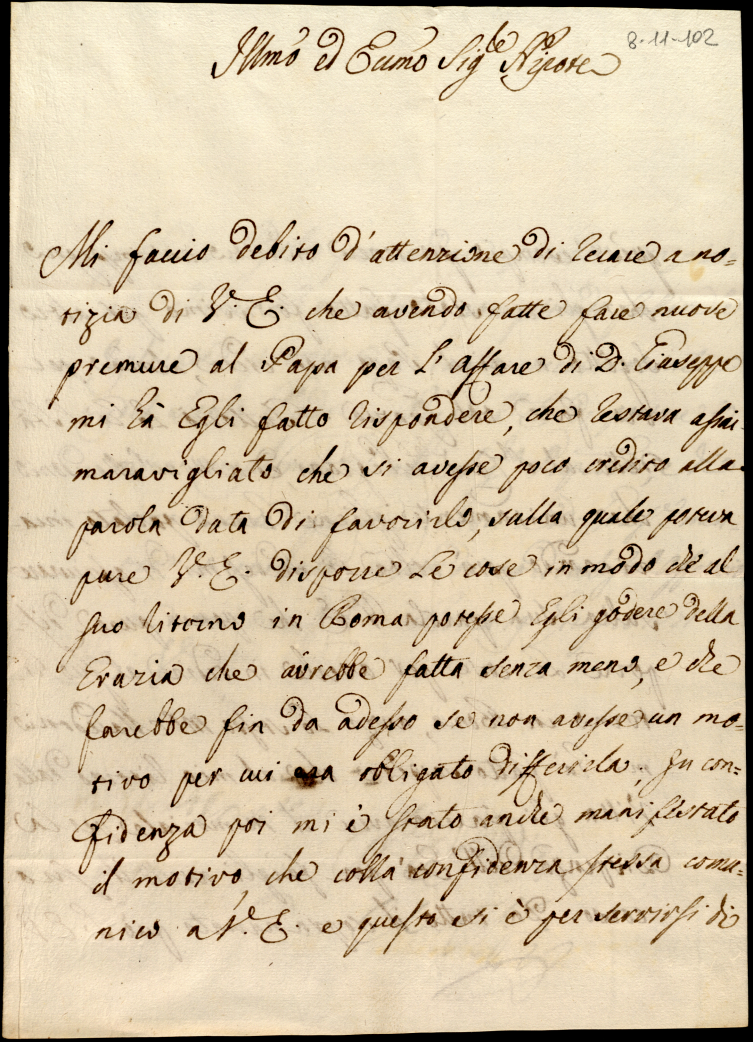 8-11-102
Illmo ed Eccmo Sigre Nipote
Mi faccio debito d'attenzione di recare a no=
tizia di V. E. che avendo fatte fare nuove
premure al Papa per l'affare di D. Giuseppe
mi hà Egli fatto rispondere, che restava assai
maravigliato che si avesse poco credito alla
parola data di favorirlo, sulla quale poteva
pure V. E. disporre le cose in modo che al
suo ritorno in Roma potesse Egli godere della
Grazia che avrebbe fatta senza meno, e che
farebbe fin da adesso se non avesse un mo=
tivo per cui era obligato differirla; In con=
fidenza poi mi è stato anche manifestato
il motivo, che colla confidenza stessa comu=
nico a V. E. e questo si è per servirsi di